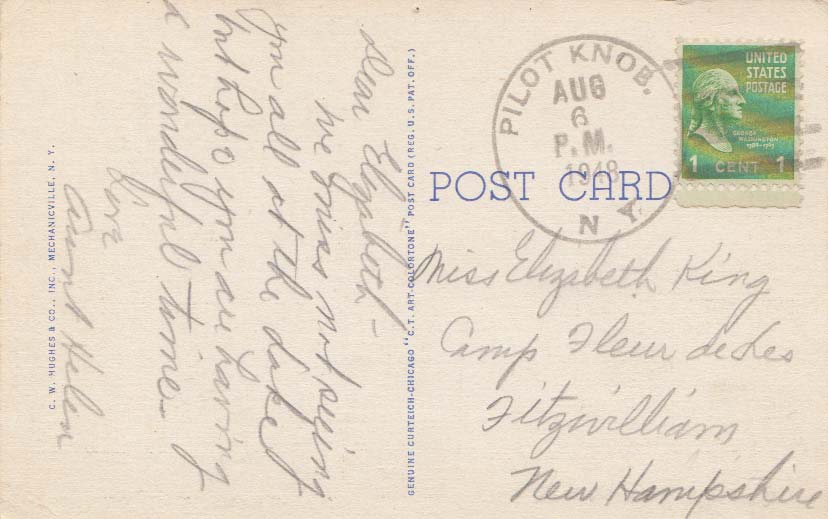 Dear Elizabeth -
We miss not seeing
you all at the lake
but hope you are having
a wonderful time -
Love
Aunt Helen
C. W. HUGHES & CO., INC., MECHANICVILLE, N. Y.
GENUINE CURTEICH-CHICAGO "C.T. ART-COLORTONE" POST CARD (REG. U.S. PAT. OFF.)
POST CARD
PILOT KNOB.
AUG
6
P.M.
1948
N Y.
UNITED
STATES
POSTAGE
GEORGE
WASHINGTON
1789-1797
1 CENT 1
Miss Elizabeth King
Camp Fleur de Les
Fitzwilliam
New Hampshire